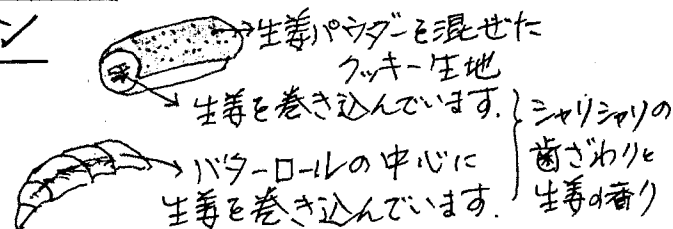 生姜パウダーを混ぜた
クッキー生地
生姜を巻き込んでいます。
バターロールの中心に
生姜を巻き込んでいます。
シャリシャリの
歯ざわりと
生姜の香り